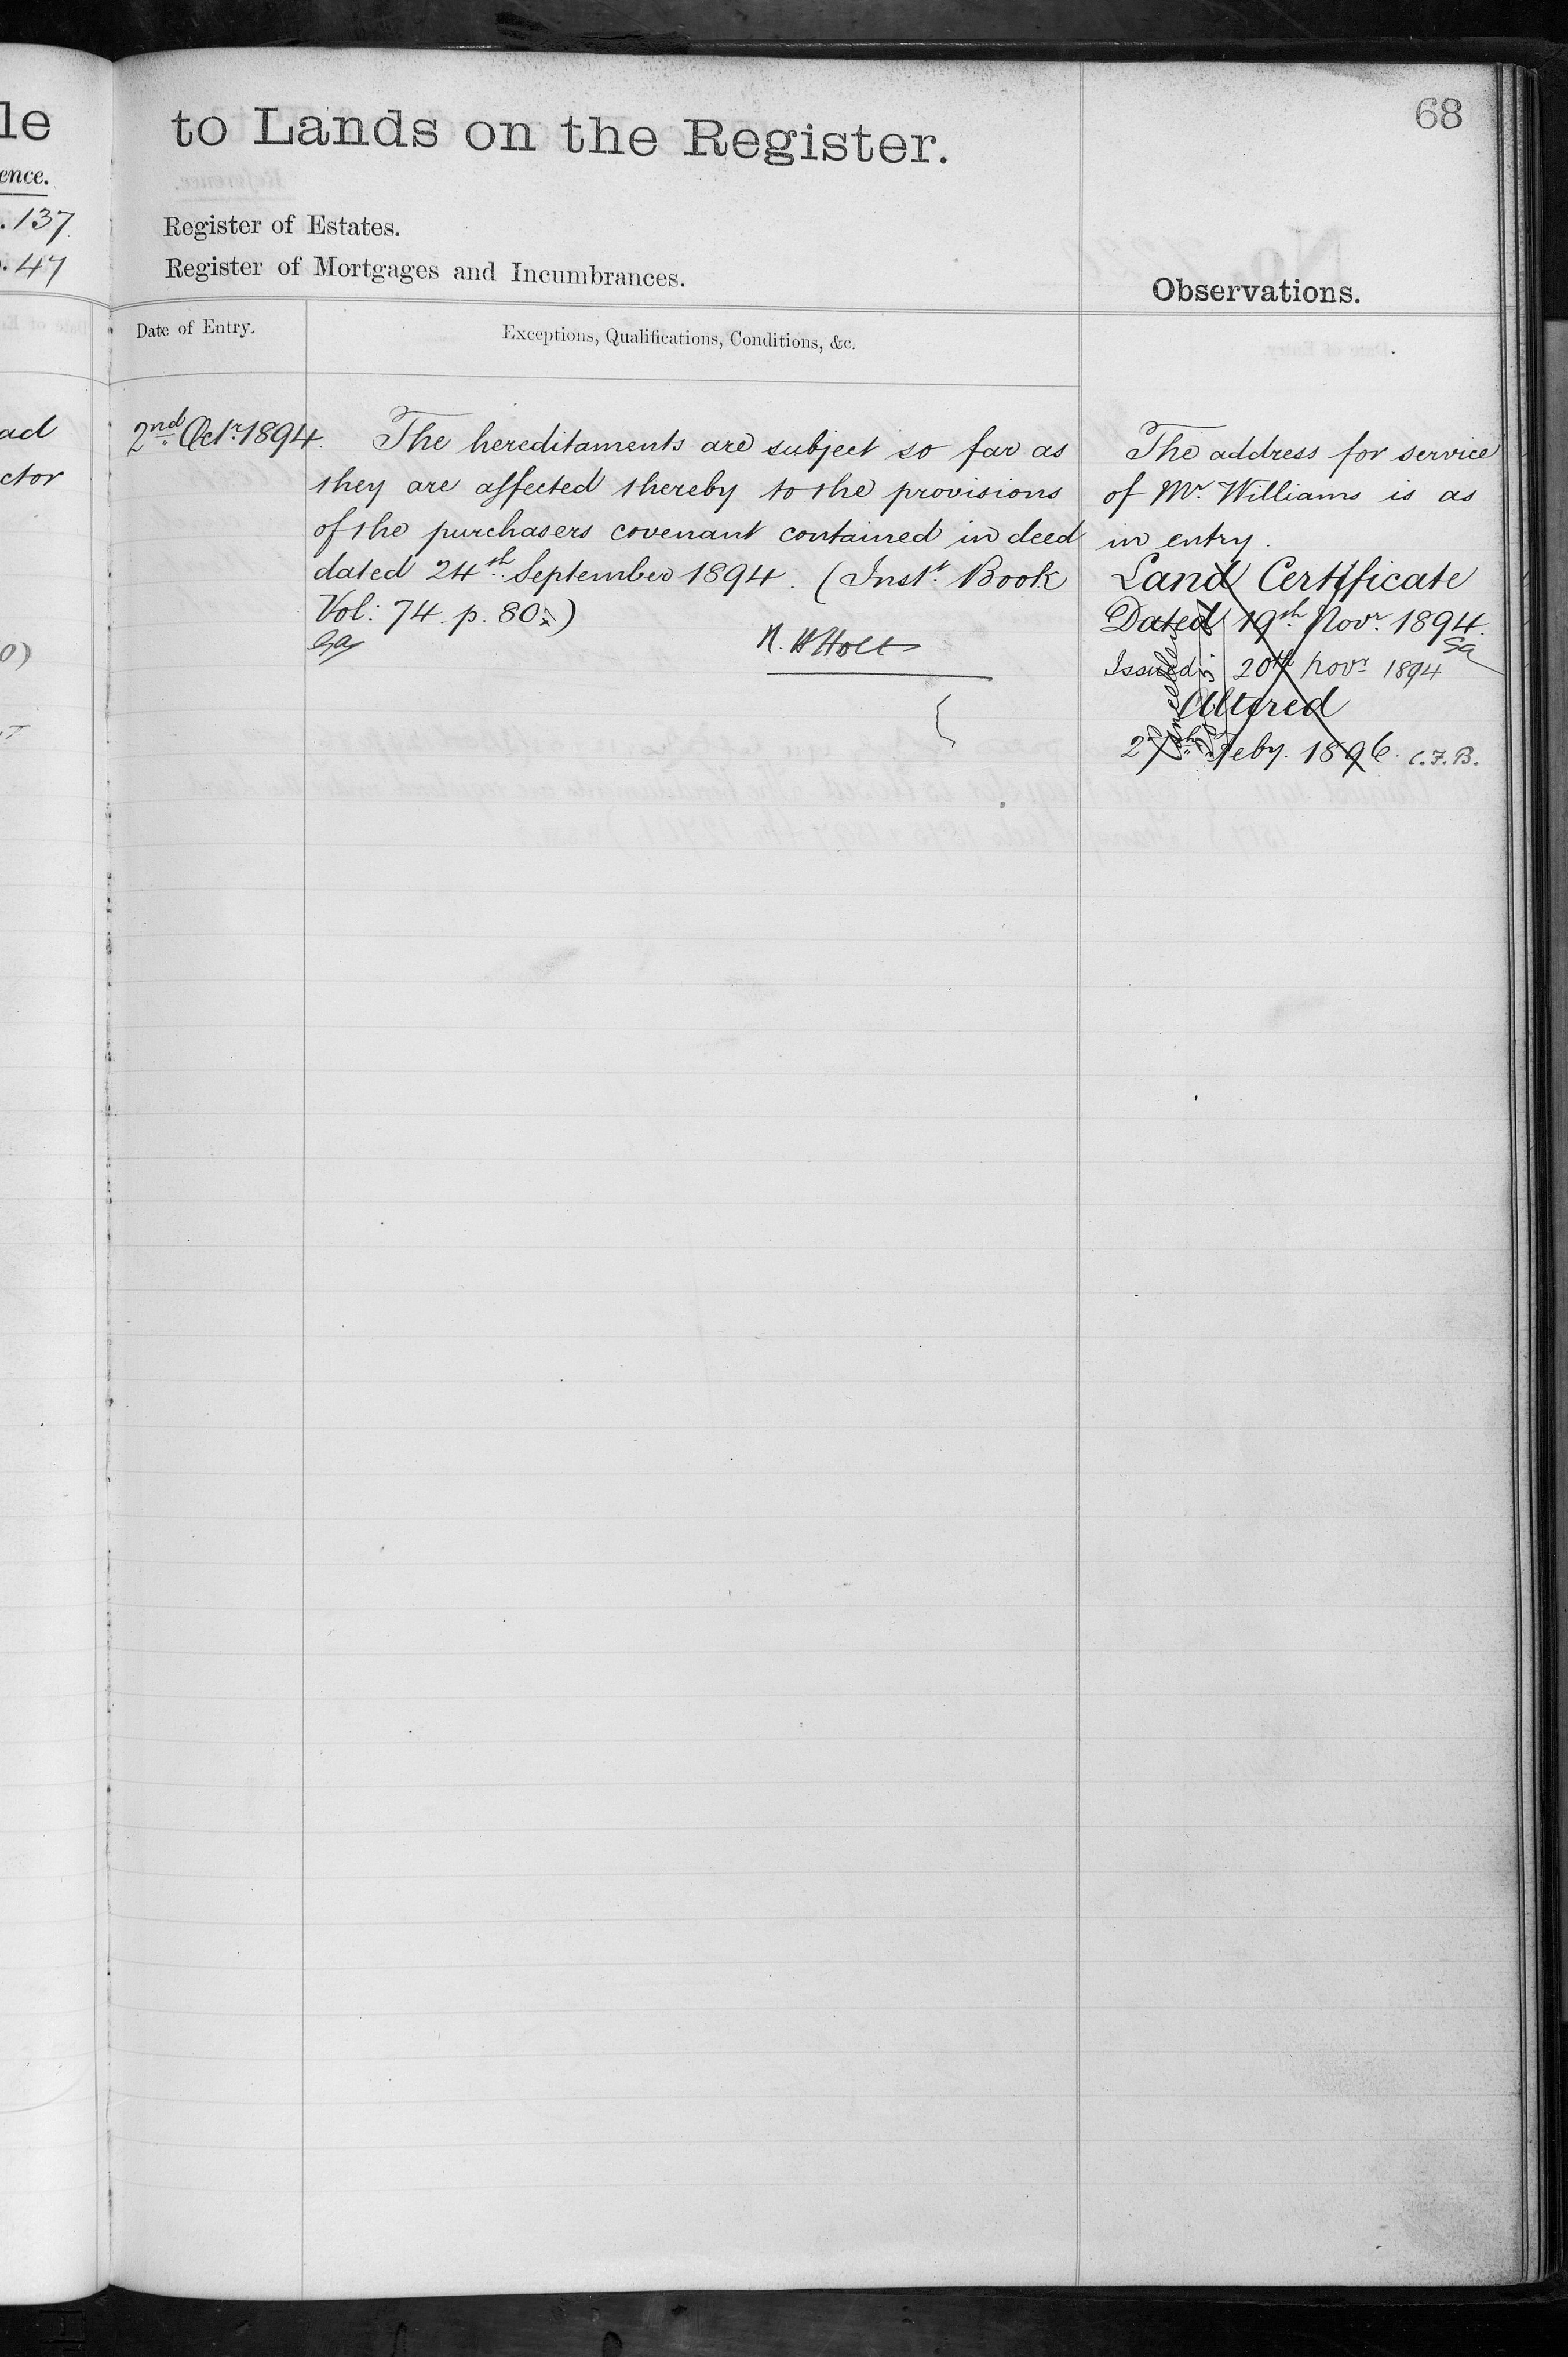 le
ence.
. 137
. 47
ad
ctor
0)
to Lands on the Register.
68
Register of Estates.
Register of Mortgages and Incumbrances.
Observations.
Date of Entry.
Exceptions, Qualifications, Conditions, &c.
2nd Octr. 1894.
The hereditaments are subject so far as
they are affected thereby to the provisions
of the purchasers covenant contained in deed
dated 24th September 1894. (Inst. Book
Vol: 74 p. 80.)
Holt
The address for service
of Mr. Williams is as
in entry.
Land Certificate
Dated 19th Novr. 1894.
Issued 20th Novr 1894
Altered
27th Feby. 1896. C.F.B.
Cancelled